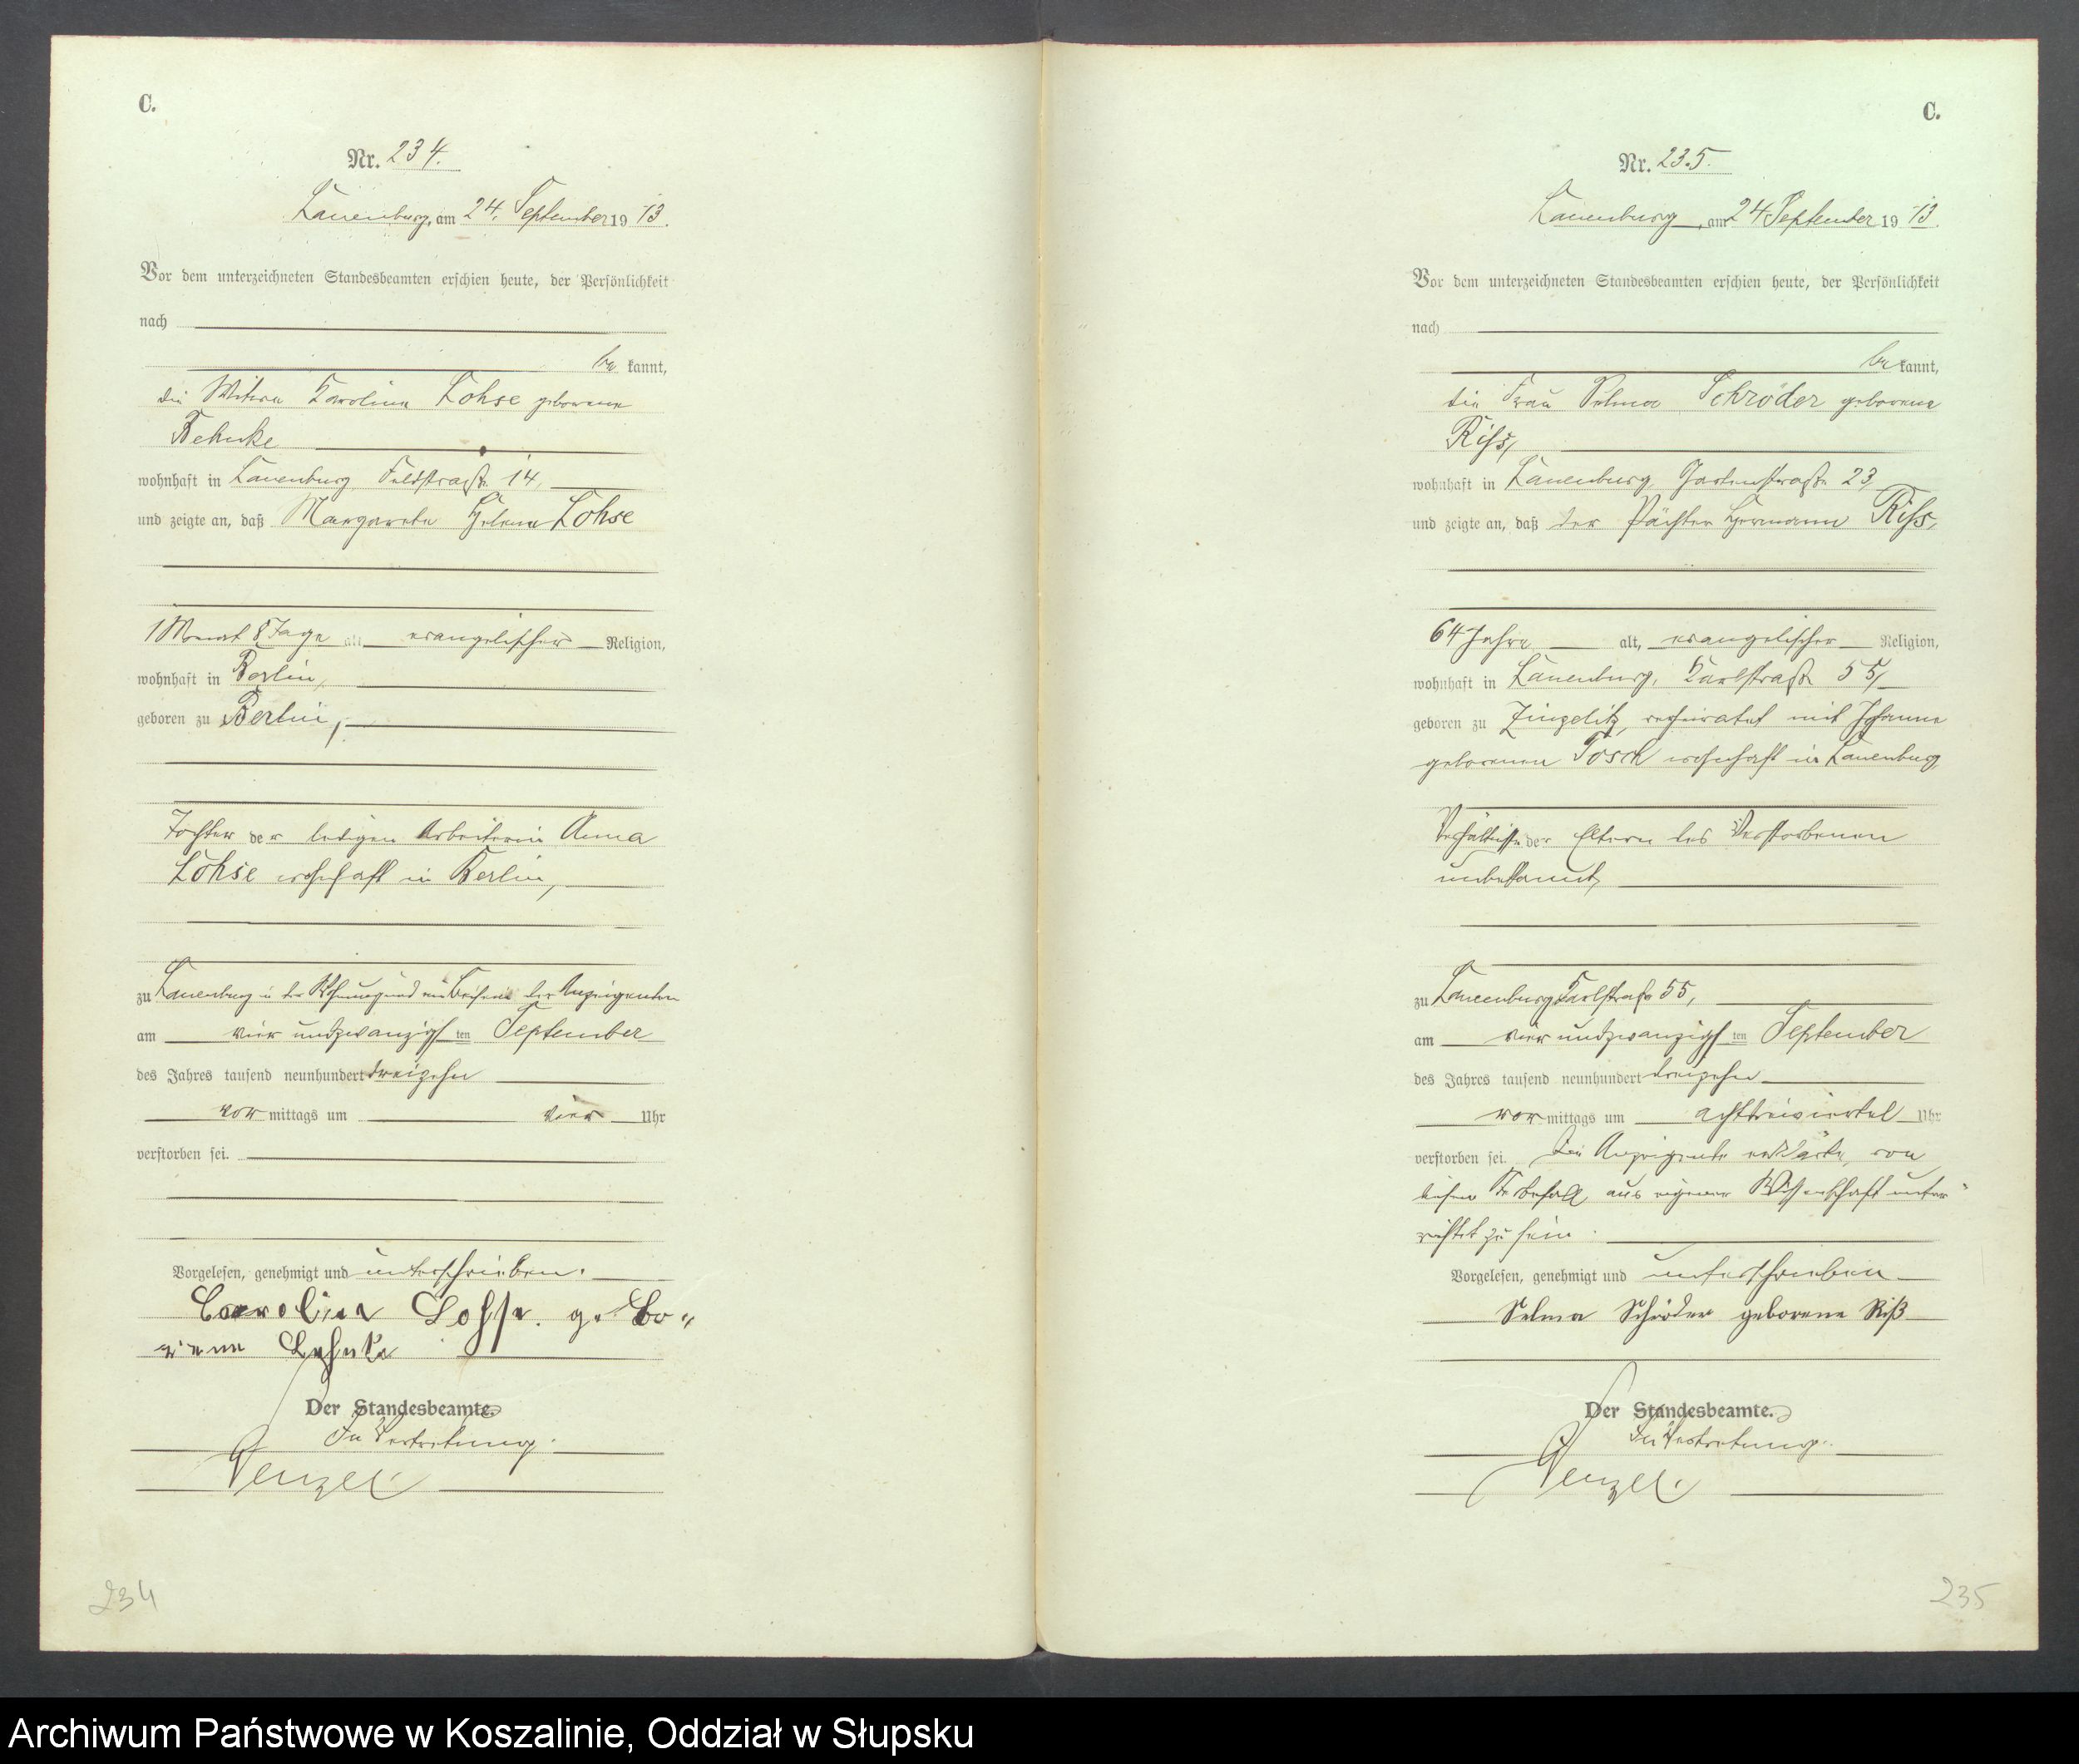 C.
Nr. 234.
Lauenburg, am 24. September 1913.
Vor dem unterzeichneten Standesbeamten erschien heute, der Persönlichkeit
nach
be kannt,
die Witwe Karoline Lohse geborene
Behnke
wohnhaft in Lauenburg, Feldstraße 14,
und zeigte an, daß Margarete Helene Lohse
1 Monat 8 Tage alt evangelischer Religion,
wohnhaft in Berlin,
geboren zu Berlin,
Tochter der ledigen Arbeiterin Anna
Lohse wohnhaft in Berlin,
zu Lauenburg in der Wohnung und im Beisein der Anzeigenden
am vier undzwanzigsten September
des Jahres tausend neunhundert dreizehn
vor mittags um vier Uhr
verstorben sei.
Vorgelesen, genehmigt und unterschrieben.
Carolina Lohse. gebo-
rene
Der Standesbeamte.
In Vertretung.
Wenzel.
234
C.
Nr. 235.
Lauenburg, am 24 September 1913.
Vor dem unterzeichneten Standesbeamten erschien heute, der Persönlichkeit
nach
be kannt,
die Frau Selma Schröder geborene
Riß,
wohnhaft in Lauenburg, Gartenstraße 23,
und zeigte an, daß der Pächter Hermann Riß,
64 Jahre alt, evangelischer Religion,
wohnhaft in Lauenburg, Karlstraße 55,
geboren zu Zinzelitz, verheiratet mit Johanne
geborenen Tosch wohnhaft in Lauenburg,
Verhältnisse der Eltern des Verstorbenen
unbekannt,
zu Lauenburg Karlstraße 55,
am vier undzwanzigsten September
des Jahres tausend neunhundert dreizehn
vor mittags um achtdreiviertel Uhr
verstorben sei. Die Anzeigende erklärte, von
diesem Sterbefall aus eigener Wissenschaft unter-
richtet zu sein.
Vorgelesen, genehmigt und unterschrieben
Selma Schröder geborene Riß
Der Standesbeamte.
In Vertretung.
Wenzel.
235
Archiwum Państwowe w Koszalinie, Oddział w Słupsku